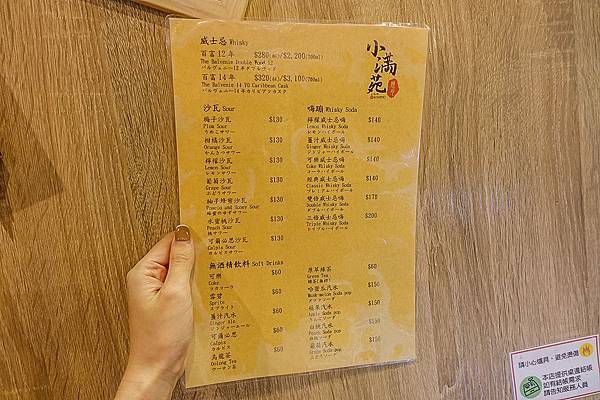 小滿苑
威士忌 Whisky
百富 12 年 $280(杯)/$2,200(700ml)
The Balvenie Double Wood 12
バルヴェニー12年ダブルウッド
百富 14 年 $320(杯)/$3,100(700ml)
The Balvenie 14 YO Caribbean Cask
バルヴェニー14年カリビアンカスク
沙瓦 Sour
梅子沙瓦 $130
Plum Sour
うめこサワー
柑橘沙瓦 $130
Orange Sour
かんきつサワー
檸檬沙瓦 $130
Lemon Sour
レモンサワー
葡萄沙瓦 $130
Grape Sour
ぶどうサワー
柚子蜂蜜沙瓦 $130
蜂蜜ゆずサワー
水蜜桃沙瓦 $130
Peach Sour
桃サワー
可爾必思沙瓦 $130
Calpis Sour
カルピスサワー
嗨蹦 Whisky Soda
檸檬威士忌嗨 $140
Lemon Whisky Soda
レモンハイボール
薑汁威士忌嗨 $140
Ginger Whisky Soda
ジンジャーハイボール
可樂威士忌嗨 $140
Coke Whisky Soda
コーラハイボール
經典威士忌嗨 $140
Classic Whisky Soda
プレミアムハイボール
雙倍威士忌嗨 $170
Double Whisky Soda
ダブルハイボール
三倍威士忌嗨 $200
Triple Whisky Soda
トリプルハイボール
無酒精飲料 Soft Drinks
可樂 $60
Coke
コカコーラ
雪碧 $60
Sprite
スプライト
薑汁汽水 $60
Ginger Ale
ジンジャーエール
可爾必思 $60
Calpis
カルピス
烏龍茶 $60
Oolong Tea
ウーロン茶
原萃綠茶 $60
Green Tea
綠茶(無糖)
哈密瓜汽水 $150
Musk-melon Soda pop
メロンソーダ
蘋果汽水 $150
Apple Soda pop
りんごソーダ
白桃汽水 $150
Peach Soda pop
白桃ソーダ
葡萄汽水 $150
Grape Soda pop
ぶどうソーダ
請小心爐具，避免燙傷
本店提供桌邊結帳
如有結帳需求
請告知服務人員